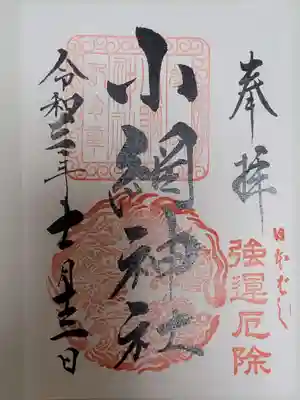 奉拝
日本ばし
強運厄除
小網神社
令和三年十一月十三日